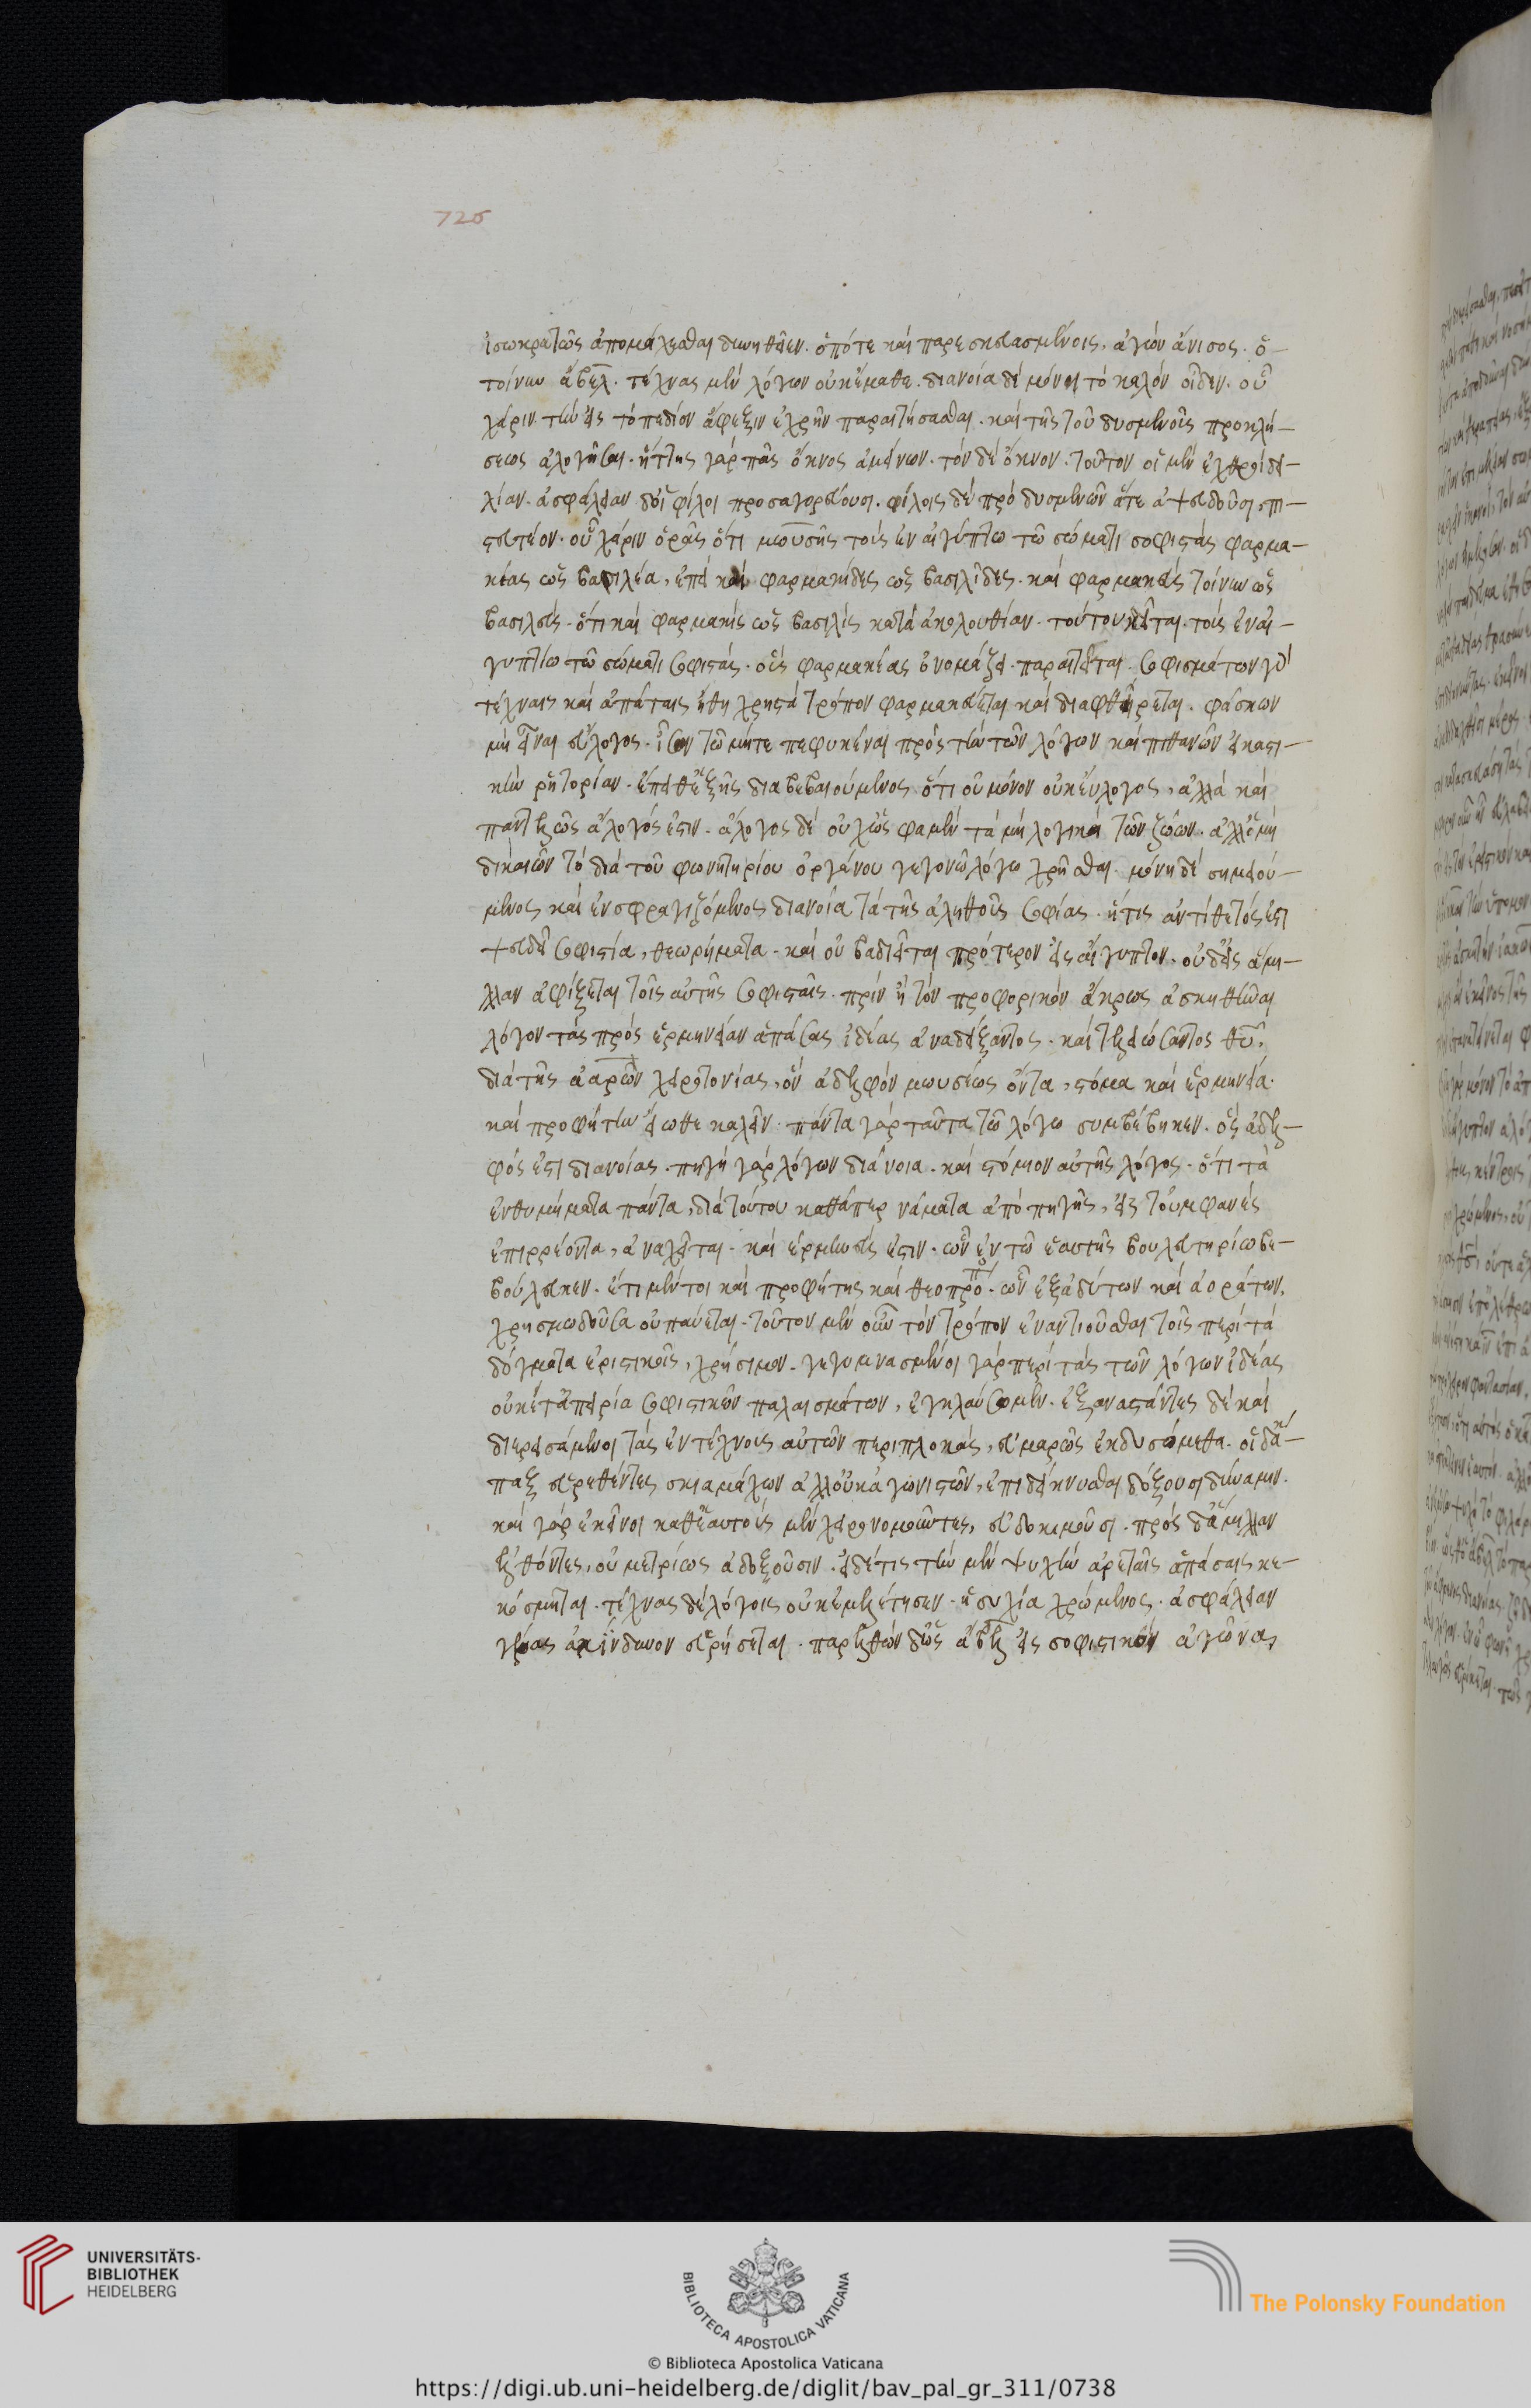 726
ἰσωκρατῶς ἀπομάχεσθαι δυνηθεῖεν. ὁπότε καὶ παρεσκευασμένοις, ἀγὼν ἄνισος. ὁ
τοίνυν ἄβελ. τέχνας μὲν λόγων οὐκ ἔμαθε. διανοία δὲ μόνη τὸ καλὸν οἶδεν. οὗ
χάριν τὴν εἰς τὸ πεδίον ἄφιξιν ἐχρῆν παραιτήσασθαι. καὶ τῆς τοῦ δυσμενοῦς προκλή-
σεως ἀλογῆσαι. ἥττης γὰρ πᾶς ὄκνος ἀμείνων. τὸν δὲ ὄκνον τοῦτον οἱ μὲν ἐχθροὶ δει-
λίαν. ἀσφάλειαν δ' οἱ φίλοι προσαγορεύουσι. φίλοις δὲ πρὸ δυσμενῶν ἅτε ἀψευδοῦσι πι-
στευτέον. οὗ χάριν ὁρᾷς ὅτι μωυσῆς τοὺς ἐν αἰγύπτω τῶ σώματι σοφιστὰς φαρμα-
κέας ὡς βασιλέα, ἐπεὶ καὶ φαρμακίδες ὡς βασιλίδες. καὶ φαρμακεὺς τοίνυν ὡς
βασιλεύς. ὅτι καὶ φαρμακὶς ὡς βασιλὶς κατὰ ἀκολουθίαν. τούτου κεῖται. τοὺς ἐν αἰ-
γυπτίω τῶ σώματι σοφιστάς. οὓς φαρμακέας ὀνομάζει. παραιτεῖται. σοφισμάτων γὰρ
τέχναις καὶ ἀπάταις ἤθη χρηστὰ τρόπον φαρμακεύεται καὶ διαφθείρεται. φάσκων
μὴ εἶναι εὔλογος. ἴσον τῶ μήτε πεφυκέναι πρὸς τὴν τῶν λόγων καὶ πιθανῶν εἰκαστι-
κὴν ῥητορίαν. ἔπειθ' ἑξῆς διαβεβαιούμενος ὅτι οὐ μόνον οὐκ εὔλογος, ἀλλὰ καὶ
παντελῶς ἄλογός ἐστιν. ἄλογος δὲ οὐχ ὡς φαμὲν τὰ μὴ λογικὰ τῶν ζώων. ἀλλ' ὁ μὴ
δικαιῶν τὸ διὰ τοῦ φωνητηρίου ὀργάνου γεγονῶ λόγω χρῆσθαι. μόνη δὲ σημειού-
μενος καὶ ἐνσφραγιζόμενος διανοία τὰ τῆς ἀληθοῦς σοφίας. ἥτις ἀντίθετός ἐστι
ψευδεῖ σοφιστία, θεωρήματα. καὶ οὐ βαδιεῖται πρότερον εἰς αἴγυπτον. οὐδ' εἰς ἅμι-
λλαν ἀφίξεται τοῖς αὐτῆς σοφισταῖς. πρὶν ἢ τὸν προφορικὸν ἄκρως ἀσκηθῆναι
λόγον τὰς πρὸς ἑρμηνείαν ἁπάσας ἰδέας ἀναδείξαντος. καὶ τελειώσαντος θυ,
διὰ τῆς ἀαρὼν χειροτονίας, ὃν ἀδελφὸν μωυσέως ὄντα, στόμα καὶ ἑρμηνέα.
καὶ προφήτην εἴωθε καλεῖν. πάντα γὰρ ταῦτα τῶ λόγω συμβέβηκεν. ὃς ἀδελ-
φός ἐστι διανοίας. πηγὴ γὰρ λόγων διάνοια. καὶ στόμιον αὐτῆς λόγος. ὅτι τὰ
ἐνθυμήματα πάντα, διὰ τούτου καθάπερ νάματα ἀπὸ πηγῆς, εἰς τοὐμφανὲς
ἐπιρρέοντα, ἀναχεῖται. καὶ ἑρμηνεύς ἐστιν. ὧν ἐν τῶ ἑαυτῆς βουλευτηρίω βε-
βούλευκεν. ἔτι μέντοι καὶ προφήτης καὶ θεοπρό. ὧν ἐξ ἀδύτων καὶ ἀοράτων.
χρησμωδοῦσα οὐ παύεται. τοῦτον μὲν οὖν τὸν τρόπον ἐναντιοῦσθαι τοῖς περὶ τὰ
δόγματα ἐριστικοῖς, χρήσιμον. γεγυμνασμένοι γὰρ περὶ τὰς τῶν λόγων ἰδέας
οὐκέτ' ἀπειρία σοφιστικῶν παλαισμάτων, ἐγκλάσομεν. ἐξαναστάντες δὲ καὶ
διερεισάμενοι τὰς ἐντέχνους αὐτῶν περιπλοκὰς, εὐμαρῶς ἐκδυσόμεθα. οἱ δὲ ἅ-
παξ εὑρεθέντες σκιαμάχων ἀλλ' οὐκ ἀγωνιστῶν, ἐπιδείκνυσθαι δόξουσι δύναμιν.
καὶ γὰρ ἐκεῖνοι καθ' ἑαυτοὺς μὲν χειρονομοῦντες, εὐδοκιμοῦσι. πρὸς δ' ἅμιλλαν
ἐλθόντες, οὐ μετρίως ἀδοξοῦσιν. εἰ δέ τις τὴν μὲν ψυχὴν ἀρεταῖς ἁπάσαις κε-
κόσμηται. τέχνας δὲ λόγοις οὐκ ἐμελέτησεν. ἡσυχία χρώμενος. ἀσφάλειαν
γέρας ἀκίνδυνον εὑρήσεται. παρελθὼν δ' ὡς ἄβελ εἰς σοφιστικὸν ἀγῶνα,
UNIVERSITÄTS-
BIBLIOTHEK
HEIDELBERG
BIBLIOTECA APOSTOLICA VATICANA
The Polonsky Foundation
© Biblioteca Apostolica Vaticana
https://digi.ub.uni-heidelberg.de/diglit/bav_pal_gr_311/0738